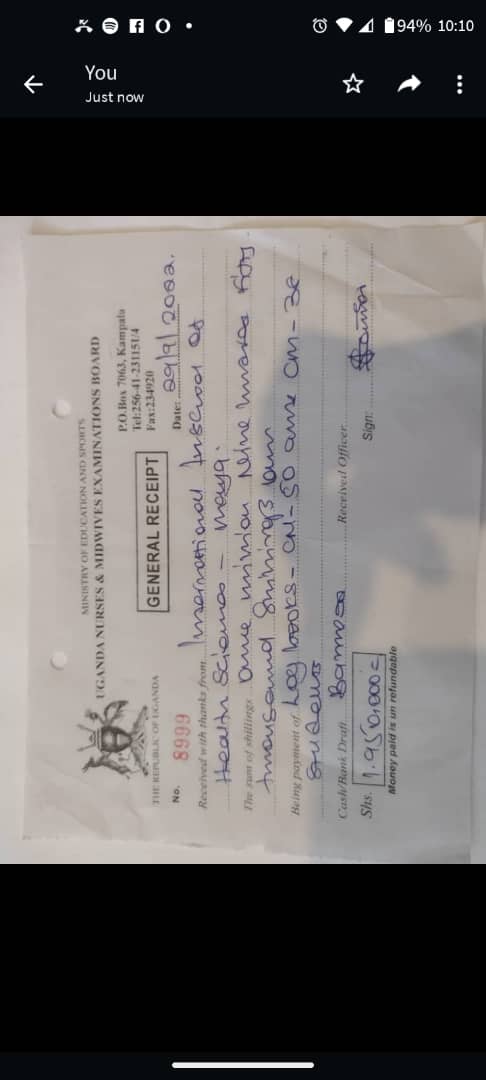 94% 10:10
You
Just now
MINISTRY OF EDUCATION AND SPORTS
UGANDA NURSES & MIDWIVES EXAMINATIONS BOARD
P.O.Box 7063, Kampala
Tel:256-41-231151/4
Fax:234920
THE REPUBLIC OF UGANDA
GENERAL RECEIPT
No. 8999
Date: 29/9/2022.
Received with thanks from International Institute of
Health Sciences - Maya.
The sum of shillings One million Nine hundred fifty
thousand Shillings
Being payment of Log books - CN- 50 and CM - 3
Students
Cash/Bank Draft Received Officer Sign:
Shs. 1.950,000=
Money paid is un refundable